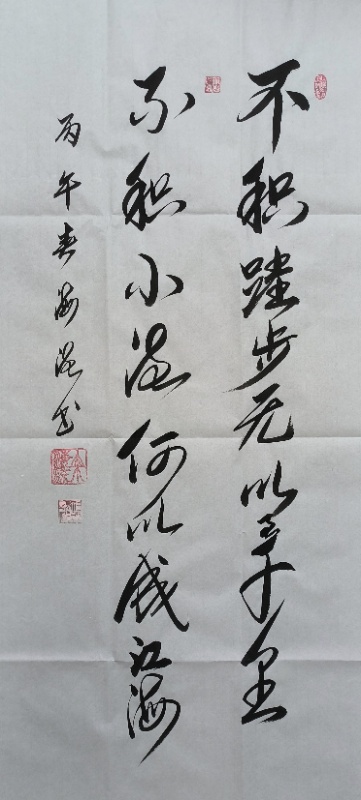 不积跬步无以至千里
不积小流何以成江海
丙午春海书